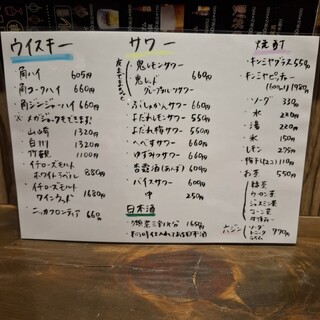 ウイスキー
角ハイ 605円
角コークハイ 660円
角ジンジャーハイ 660円
※メガジョッキもできます!
山崎 1320円
白州 1320円
竹鶴 1100円
イチローズモルト
ホワイトラベル 880円
イチローズモルト
ワインウッド 1680円
ニッカフロンティア 660円
サワー
鬼レモンサワー 660円
鬼レッド
グレープフルーツサワー
ぶしゅかんサワー 660円
よだれレモンサワー 550円
よだれ梅サワー 550円
へべすサワー 660円
ゆずみつサワー 660円
バイスサワー 660円
中 250円
日本酒
焼酎
キンミヤグラス 550円
キンミヤピッチャー
ソーダ 330円
水 220円
湯 220円
氷 150円
レモン 275円
梅干し(2コ) 110円
お茶 550円
緑茶
ウーロン茶
ジャスミン茶
コーン茶
六ジン
ソーダ
トニック 770円